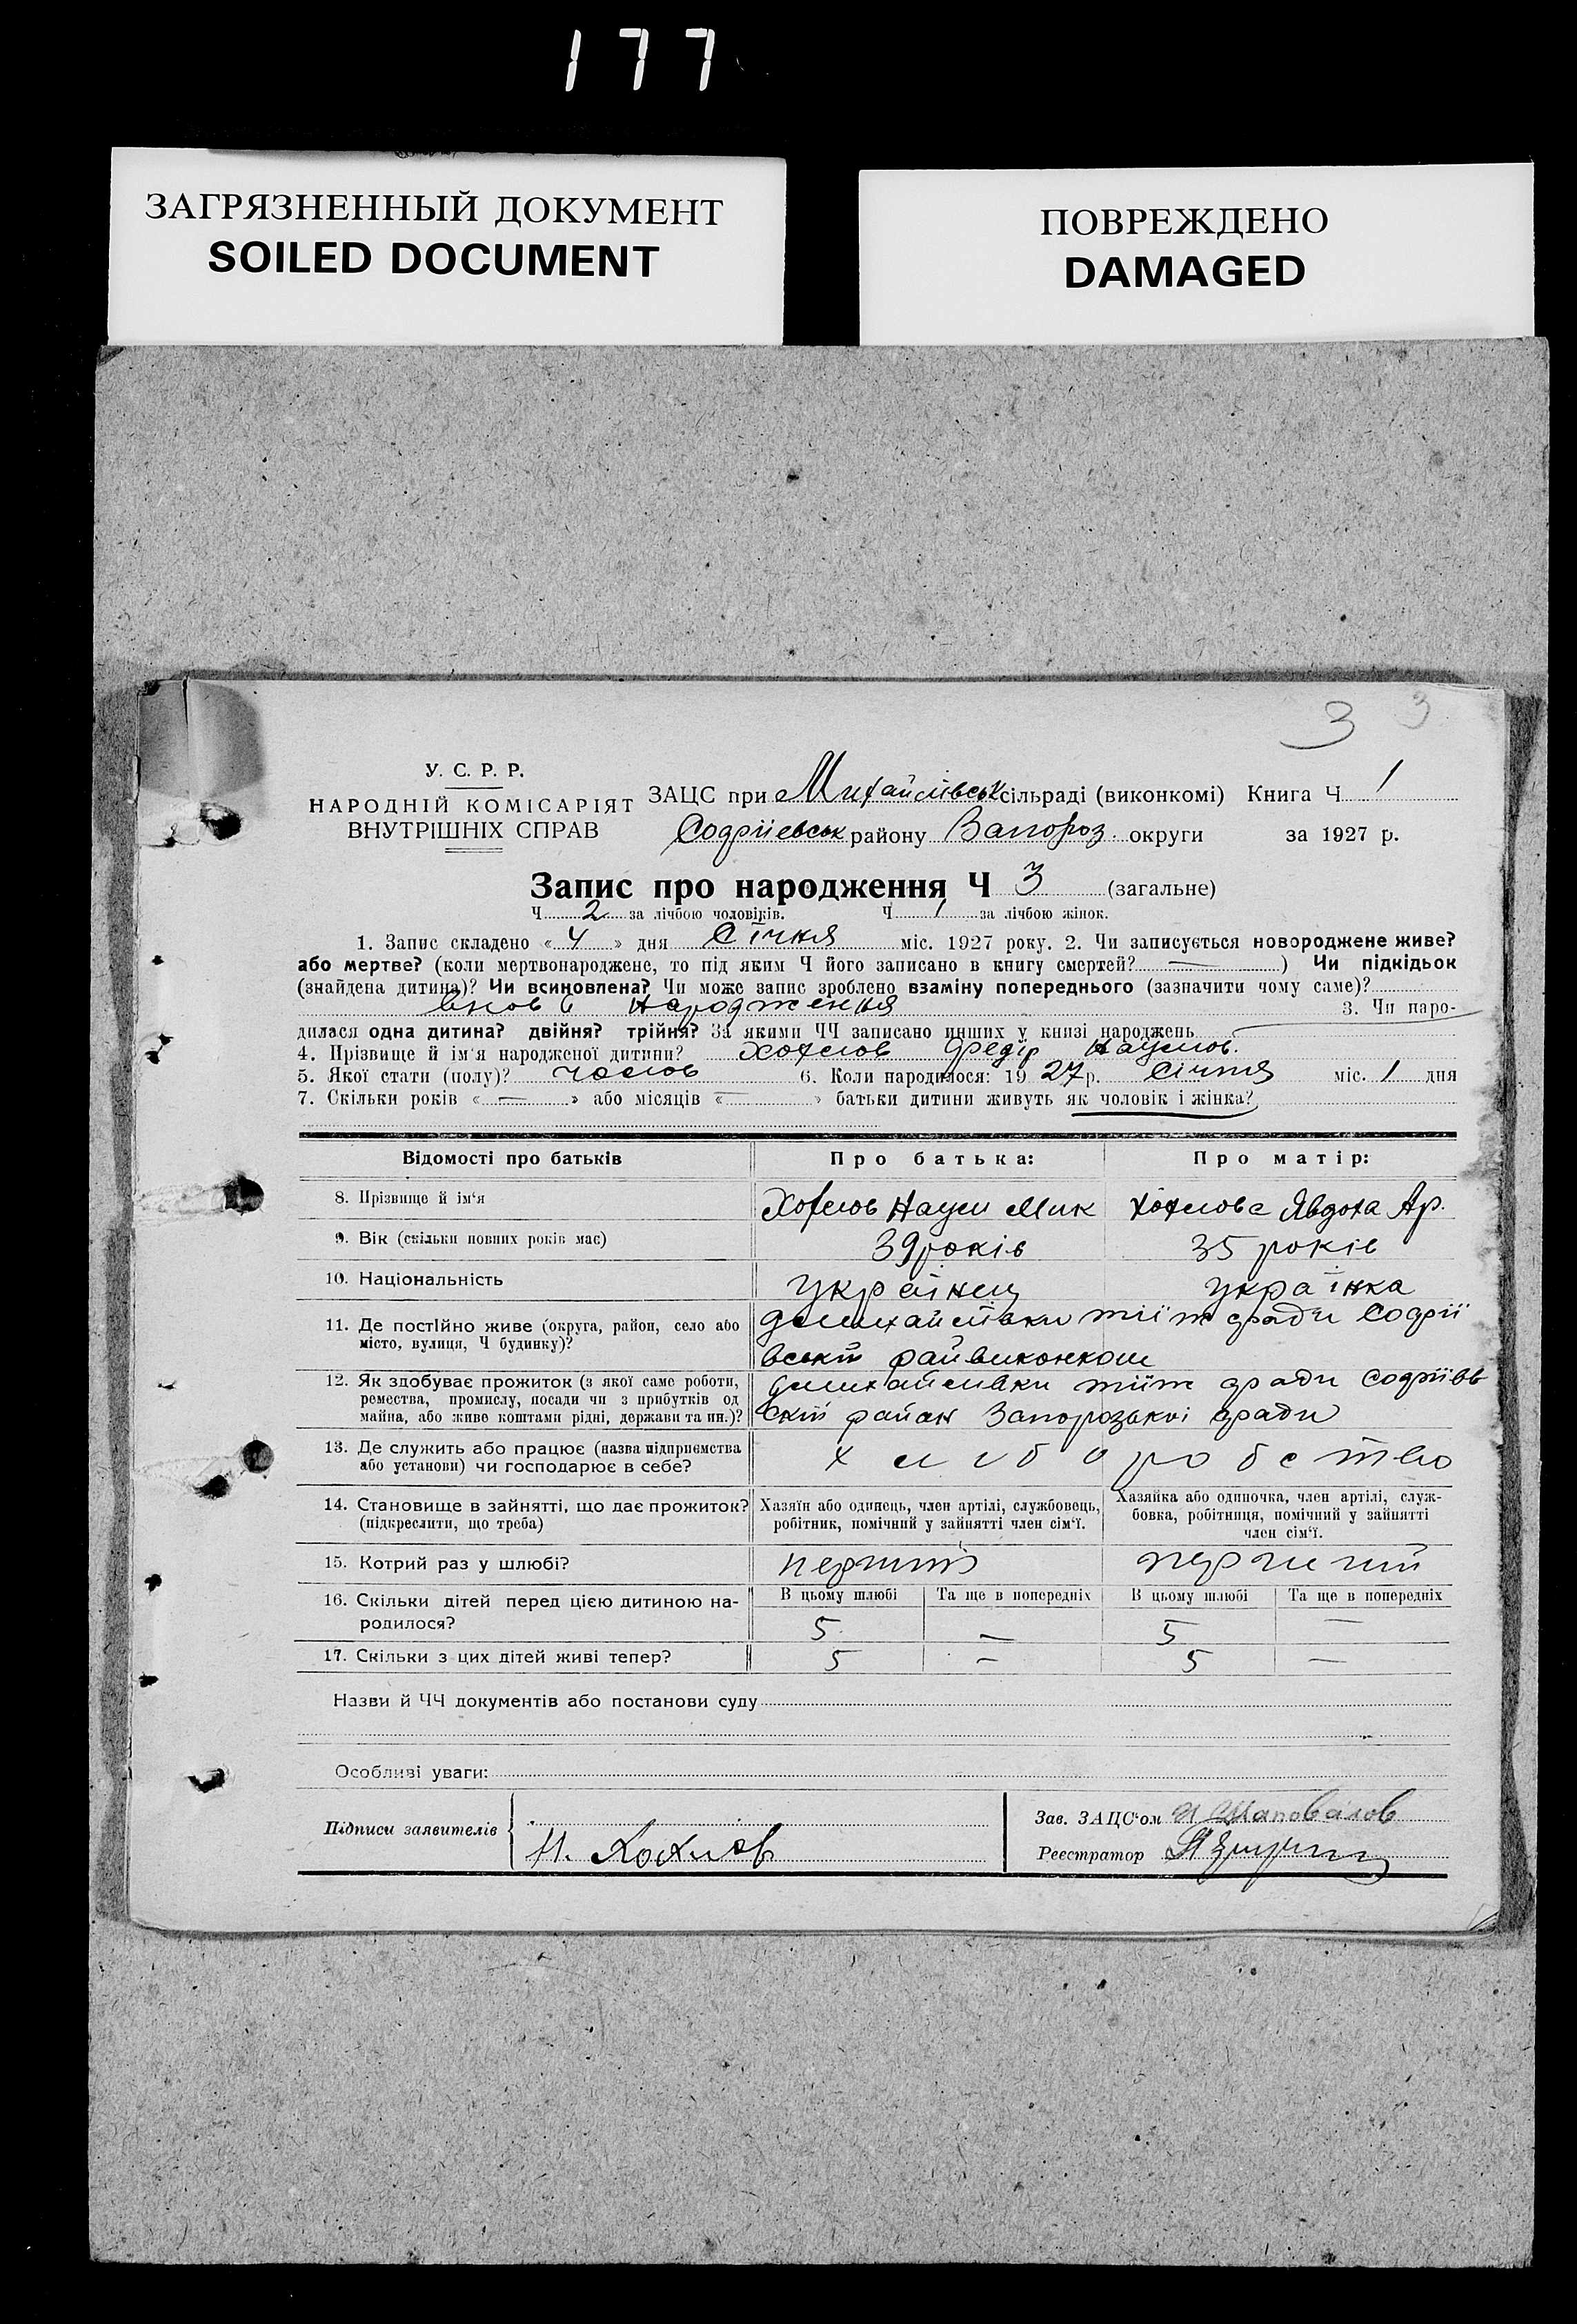 177
ЗАГРЯЗНЕННЫЙ ДОКУМЕНТ
SOILED DOCUMENT
ПОВРЕЖДЕНО
DAMAGED
3 3
У. С. Р. Р.
НАРОДНІЙ КОМІСАРІЯТ
ВНУТРІШНІХ СПРАВ
ЗАЦС при Михайлівськ сільраді (виконкомі) Книга Ч 1
Софіївськ району Запороз. округи за 1927 р.
Запис про народження Ч 3 (загальне)
Ч 2 за лічбою чоловіків. Ч 1 за лічбою жінок.
1. Запис складено «4» дня Січня міс. 1927 року. 2. Чи записується новороджене живе?
або мертве? (коли мертвонароджене, то під яким Ч його записано в книгу смертей? —) Чи підкідьок
(знайдена дитина)? Чи всиновлена? Чи може запис зроблено взаміну попереднього (зазначити чому саме)?
народження 3. Чи наро-
дилася одна дитина? двійня? трійня? За якими ЧЧ записано инших у книзі народжень
4. Прізвище й ім'я народженої дитини? Хохлов Федір Наумов.
5. Якої стати (полу)? чолов 6. Коли народилося: 19 27 р. Січня міс. 1 дня
7. Скільки років «—» або місяців «—» батьки дитини живуть як чоловік і жінка?
Відомості про батьків Про батька: Про матір:
8. Прізвище й ім'я Хохлов Наум Мик Хохлова Явдоха Ар.
9. Вік (скільки повних років має) 39 років 35 років
10. Національність українец українка
11. Де постійно живе (округа, район, село або
місто, вулиця, Ч будинку)?
райвиконком
12. Як здобуває прожиток (з якої саме роботи,
ремества, промислу, посади чи з прибутків од
майна, або живе коштами рідні, держави та ин.)?
район Запорозької
13. Де служить або працює (назва підприємства
або установи) чи господарює в себе? хлиборобство
14. Становище в зайнятті, що дає прожиток?
(підкреслити, що треба)
Хазяїн або одинець, член артілі, службовець,
робітник, помічний у зайнятті член сім'ї.
Хазяйка або одиночка, член артілі, служ-
бовка, робітниця, помічний у зайнятті
член сім'ї.
15. Котрий раз у шлюбі? перший перший
16. Скільки дітей перед цією дитиною на-
родилося?
В цьому шлюбі Та ще в попередніх В цьому шлюбі Та ще в попередніх
5 — 5 —
17. Скільки з цих дітей живі тепер? 5 — 5 —
Назви й ЧЧ документів або постанови суду
Особливі уваги:
Підписи заявителів Н. Хохлов
Зав. ЗАЦС'ом И Шаповалов
Реєстратор